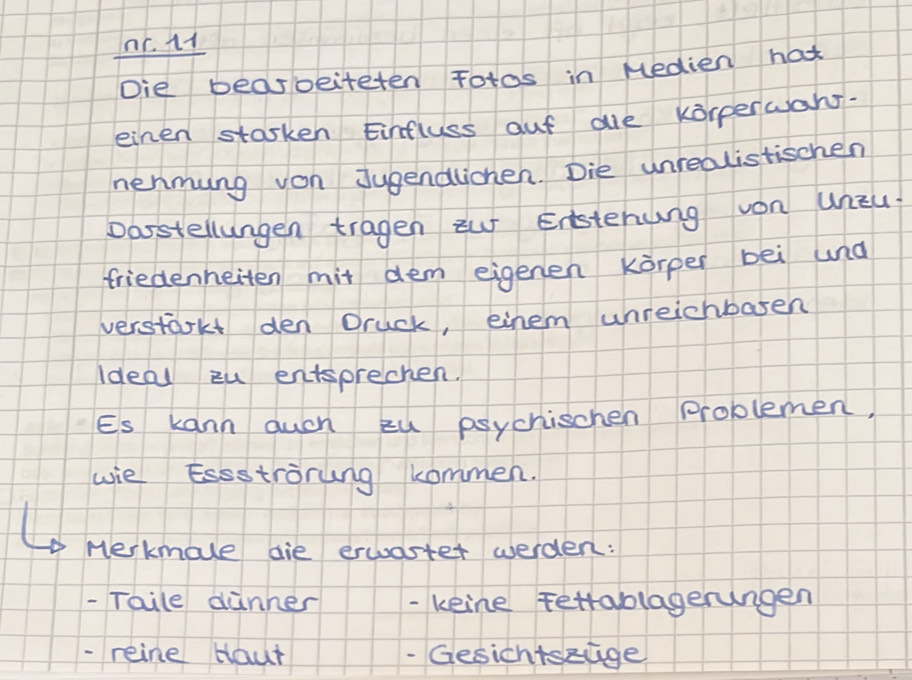 nr. 11
Die bearbeiteten Fotos in Medien hat
einen starken Einfluss auf die Körperwahr-
nehmung von Jugendlichen. Die unrealistischen
Darstellungen tragen zur Entstehung von Unzu-
friedenheiten mit dem eigenen Körper bei und
verstärkt den Druck, einem unreichbaren
Ideal zu entsprechen.
Es kann auch zu psychischen Problemen,
wie Essströrung kommen.
↳ Merkmale die erwartet werden:
- Taile dünner - keine Fettablagerungen
- reine Haut - Gesichtszüge